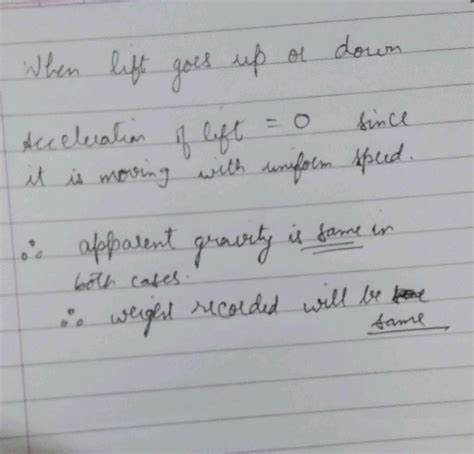 When lift goes up or down
Acceleration of lift = 0 since
it is moving with uniform speed.
∴ apparent gravity is same in
both cases.
∴ weight recorded will be
same